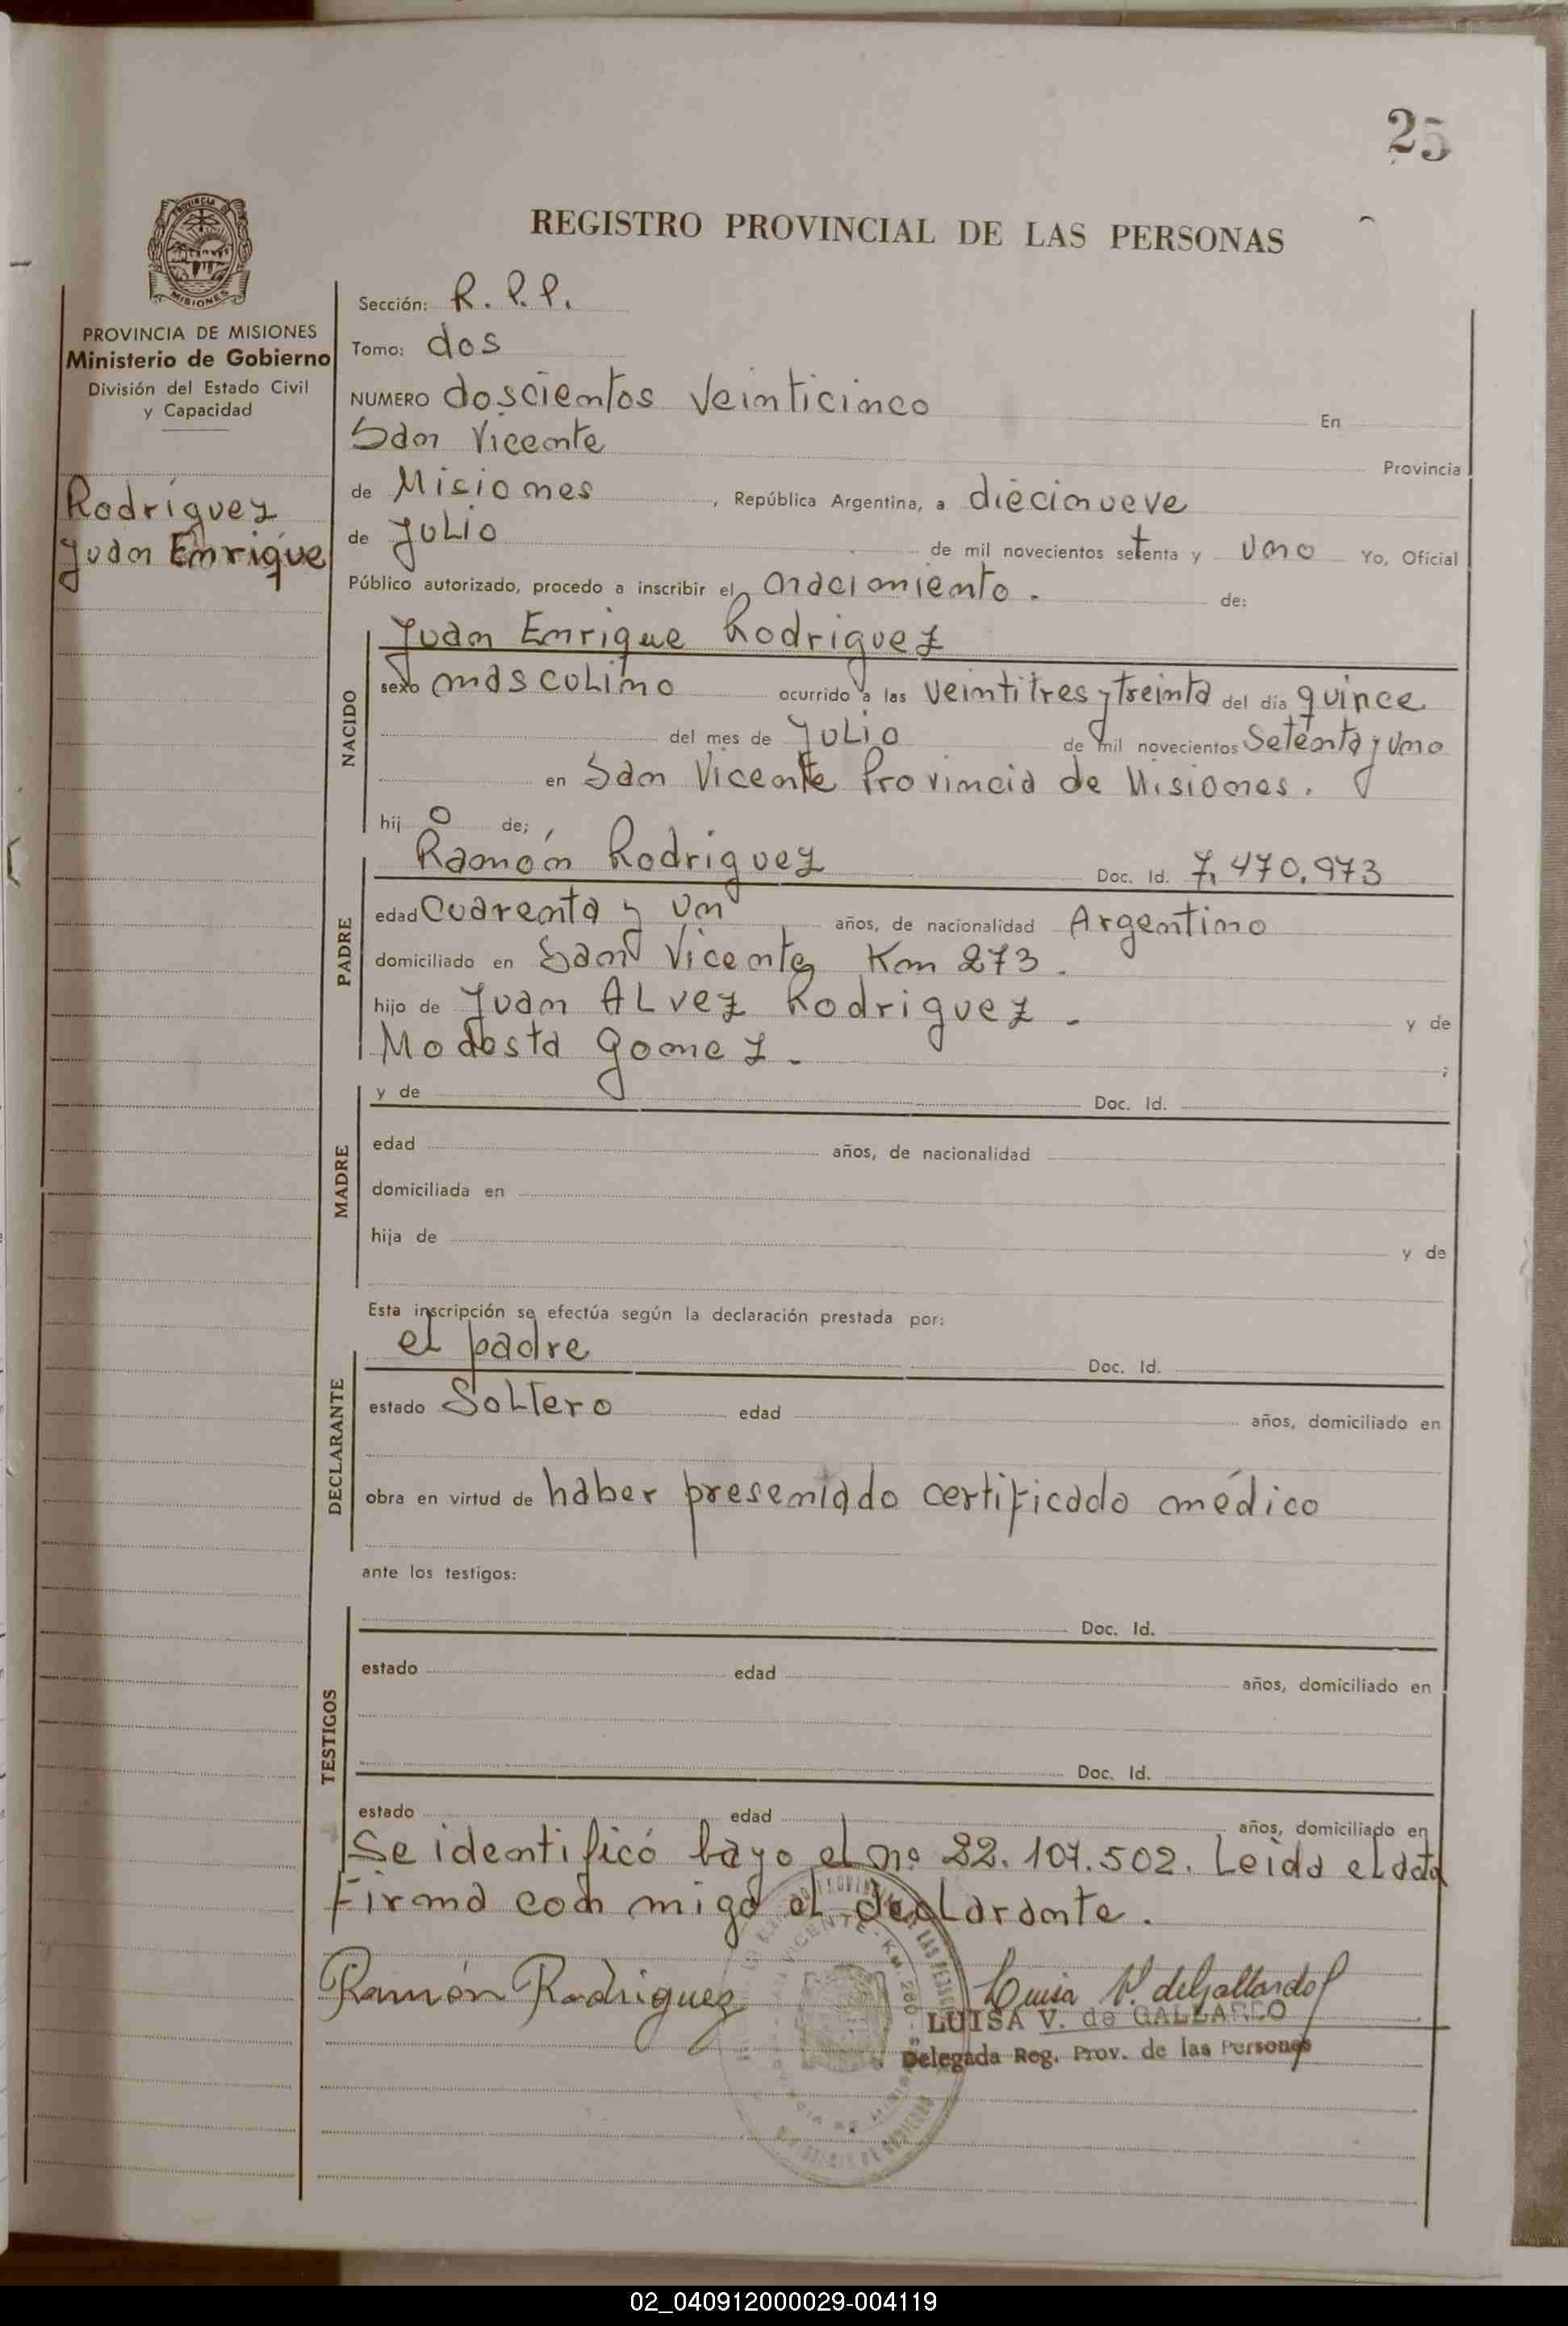 25
REGISTRO PROVINCIAL DE LAS PERSONAS
PROVINCIA DE
MISIONES
PROVINCIA DE MISIONES
Ministerio de Gobierno
División del Estado Civil
y Capacidad
Rodríguez
Juan Enrique
Sección: R.P.P.
Tomo: dos
NUMERO doscientos veinticinco En
San Vicente Provincia
de Misiones, República Argentina, a diecinueve
de Julio de mil novecientos setenta y uno Yo, Oficial
Público autorizado, procedo a inscribir el nacimiento. de:
NACIDO
Juan Enrique Rodriguez
sexo masculino ocurrido a las veintitres y treinta del día quince
del mes de Julio de mil novecientos setenta y uno
en San Vicente Provincia de Misiones.
hij o de;
PADRE
Ramón Rodriguez Doc. Id. 7.470.973
edad cuarenta y un años, de nacionalidad Argentino
domiciliado en San Vicente Km 273.
hijo de Juan Alvez Rodriguez. y de
Modesta Gomez. ;
MADRE
y de Doc. Id.
edad años, de nacionalidad
domiciliada en
hija de y de
Esta inscripción se efectúa según la declaración prestada por:
DECLARANTE
el padre Doc. Id.
estado Soltero edad años, domiciliado en
obra en virtud de haber presentado certificado médico
ante los testigos:
TESTIGOS
Doc. Id.
estado edad años, domiciliado en
Doc. Id.
estado edad años, domiciliado en
Se identificó bajo el nº 22.107.502. Leida el acta
Firma con migo el declarante.
Ramón Rodriguez
Luisa V. de Gallardo
LUISA V. de GALLARDO
Delegada Reg. Prov. de las Personas
02_040912000029-004119